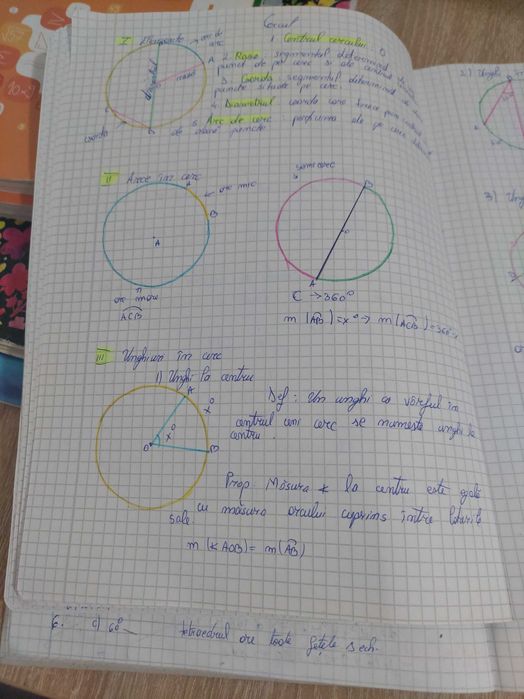 Cercul
I. Elemente
1. Centrul cercului O
arc de cerc
A
2. Raza: segmentul determinat de un
punct de pe cerc si de centrul
3. Coarda: segmentul determinat de
puncte situate pe cerc.
4. Diametrul coarda care trece prin
5. Arc de cerc: porțiunea de pe cerc
de două puncte
raza
Diametrul
coarda
C
II Arce în cerc
A
arc mic
B
A
arc mare
ACB
semicerc
B
O
A
C → 360°
m (AB) = x° → m (ACB) = 360°-
III Unghiuri în cerc
1) Unghi la centru
A
x°
O
x°
B
Def: Un unghi cu vârful în
centrul unui cerc se numeste unghi la
centru.
Prop. Măsura ∢ la centru este egală
cu măsura arcului cuprins între laturile
sale
m (∢AOB) = m (AB)
6. c) 60°
tetraedrul are toate fețele s ech.
2) Unghi
3) Ung